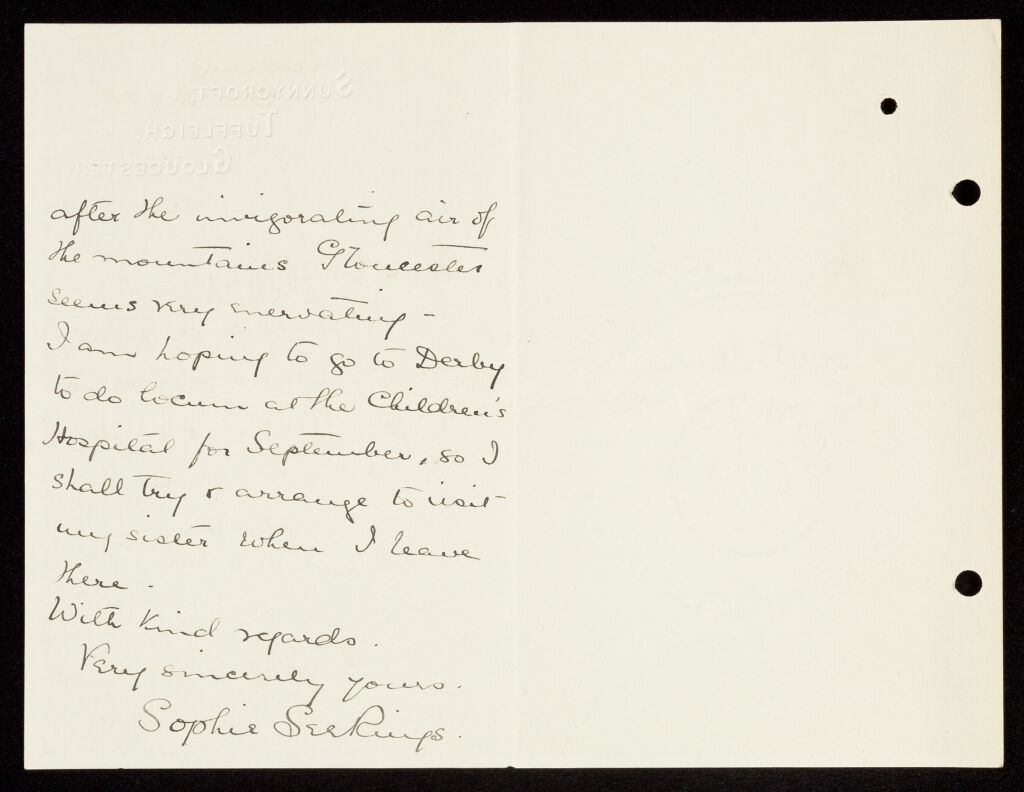 SUNNYCROFT,
TUFFLEIGH,
GLOUCESTER
after the invigorating air of
the mountains Gloucester
seems very enervating –
I am hoping to go to Derby
to do locum at the Children's
Hospital for September, so I
shall try & arrange to visit
my sister when I leave
there.
With kind regards.
Very sincerely yours.
Sophie Seekings.